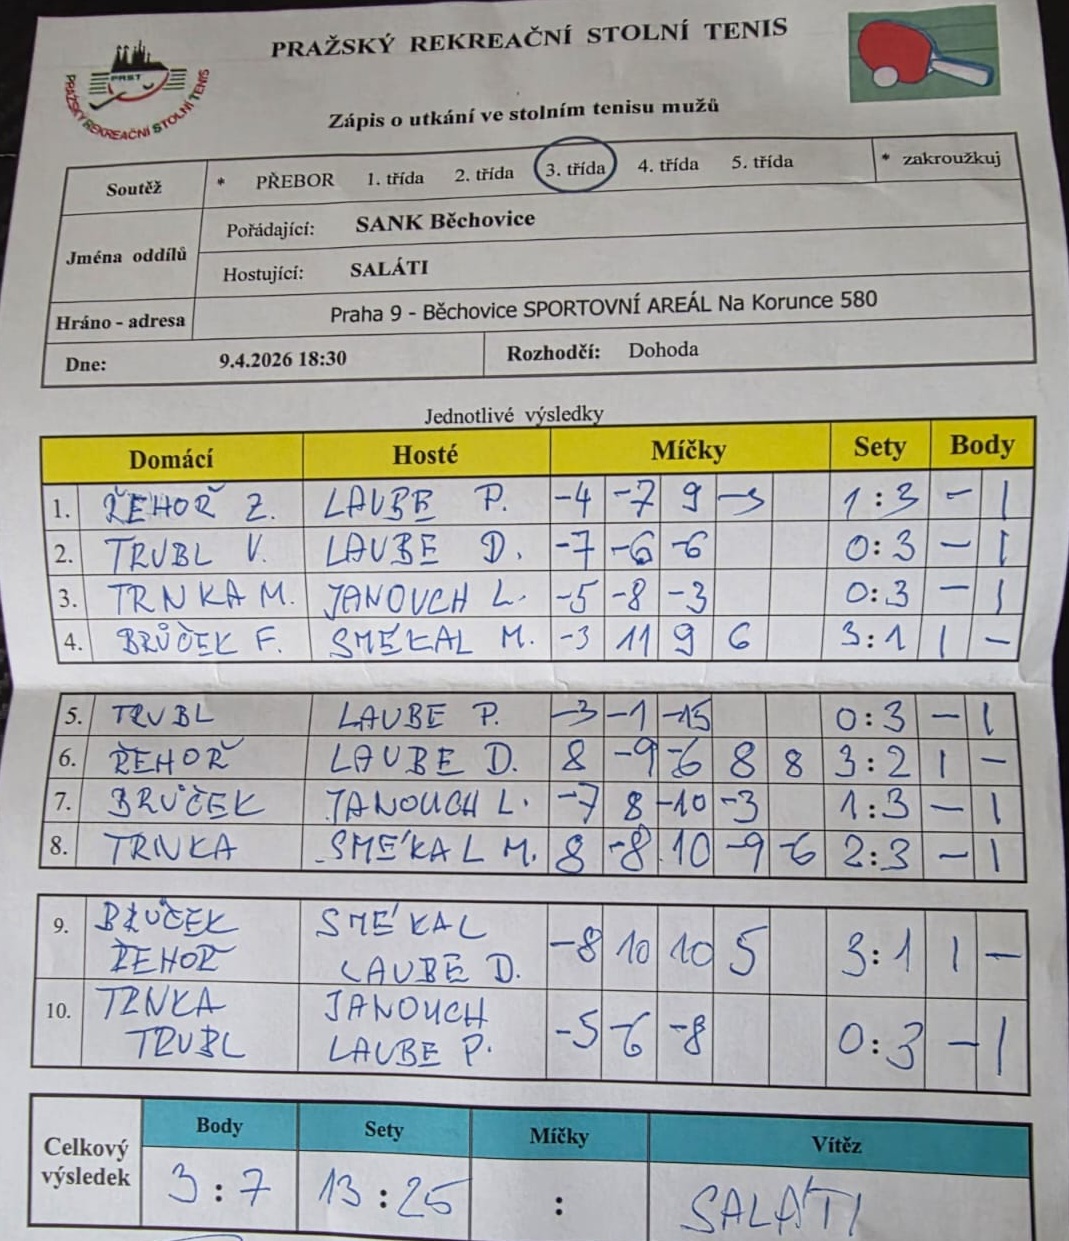 PRAŽSKÝ REKREAČNÍ STOLNÍ TENIS
PRST
PRAŽSKÝ REKREAČNÍ STOLNÍ TENIS
Zápis o utkání ve stolním tenisu mužů
Soutěž * PŘEBOR 1. třída 2. třída 3. třída 4. třída 5. třída * zakroužkuj
Jména oddílů
Pořádající: SANK Běchovice
Hostující: SALÁTI
Hráno - adresa Praha 9 - Běchovice SPORTOVNÍ AREÁL Na Korunce 580
Dne: 9.4.2026 18:30 Rozhodčí: Dohoda
Jednotlivé výsledky
Domácí Hosté Míčky Sety Body
1. ŘEHOŘ Z. LAUBE P. -4 -7 9 -5 1:3 - 1
2. TRUBL V. LAUBE D. -7 -6 -6 0:3 - 1
3. TRNKA M. JANOUCH L. -5 -8 -3 0:3 - 1
4. BRŮČEK F. SMÉKAL M. -3 11 9 6 3:1 1 -
5. TRUBL LAUBE P. -3 -1 -15 0:3 - 1
6. ŘEHOŘ LAUBE D. 8 -9 -6 8 8 3:2 1 -
7. BRŮČEK JANOUCH L. -7 8 -10 -3 1:3 - 1
8. TRNKA SMÉKAL M. 8 -8 10 -9 -6 2:3 - 1
9. BRŮČEK SMÉKAL -8 10 10 5 3:1 1 -
ŘEHOŘ LAUBE D.
10. TRNKA JANOUCH -5 -6 -8 0:3 - 1
TRUBL LAUBE P.
Celkový výsledek
Body Sety Míčky Vítěz
3:7 13:25 : SALÁTI